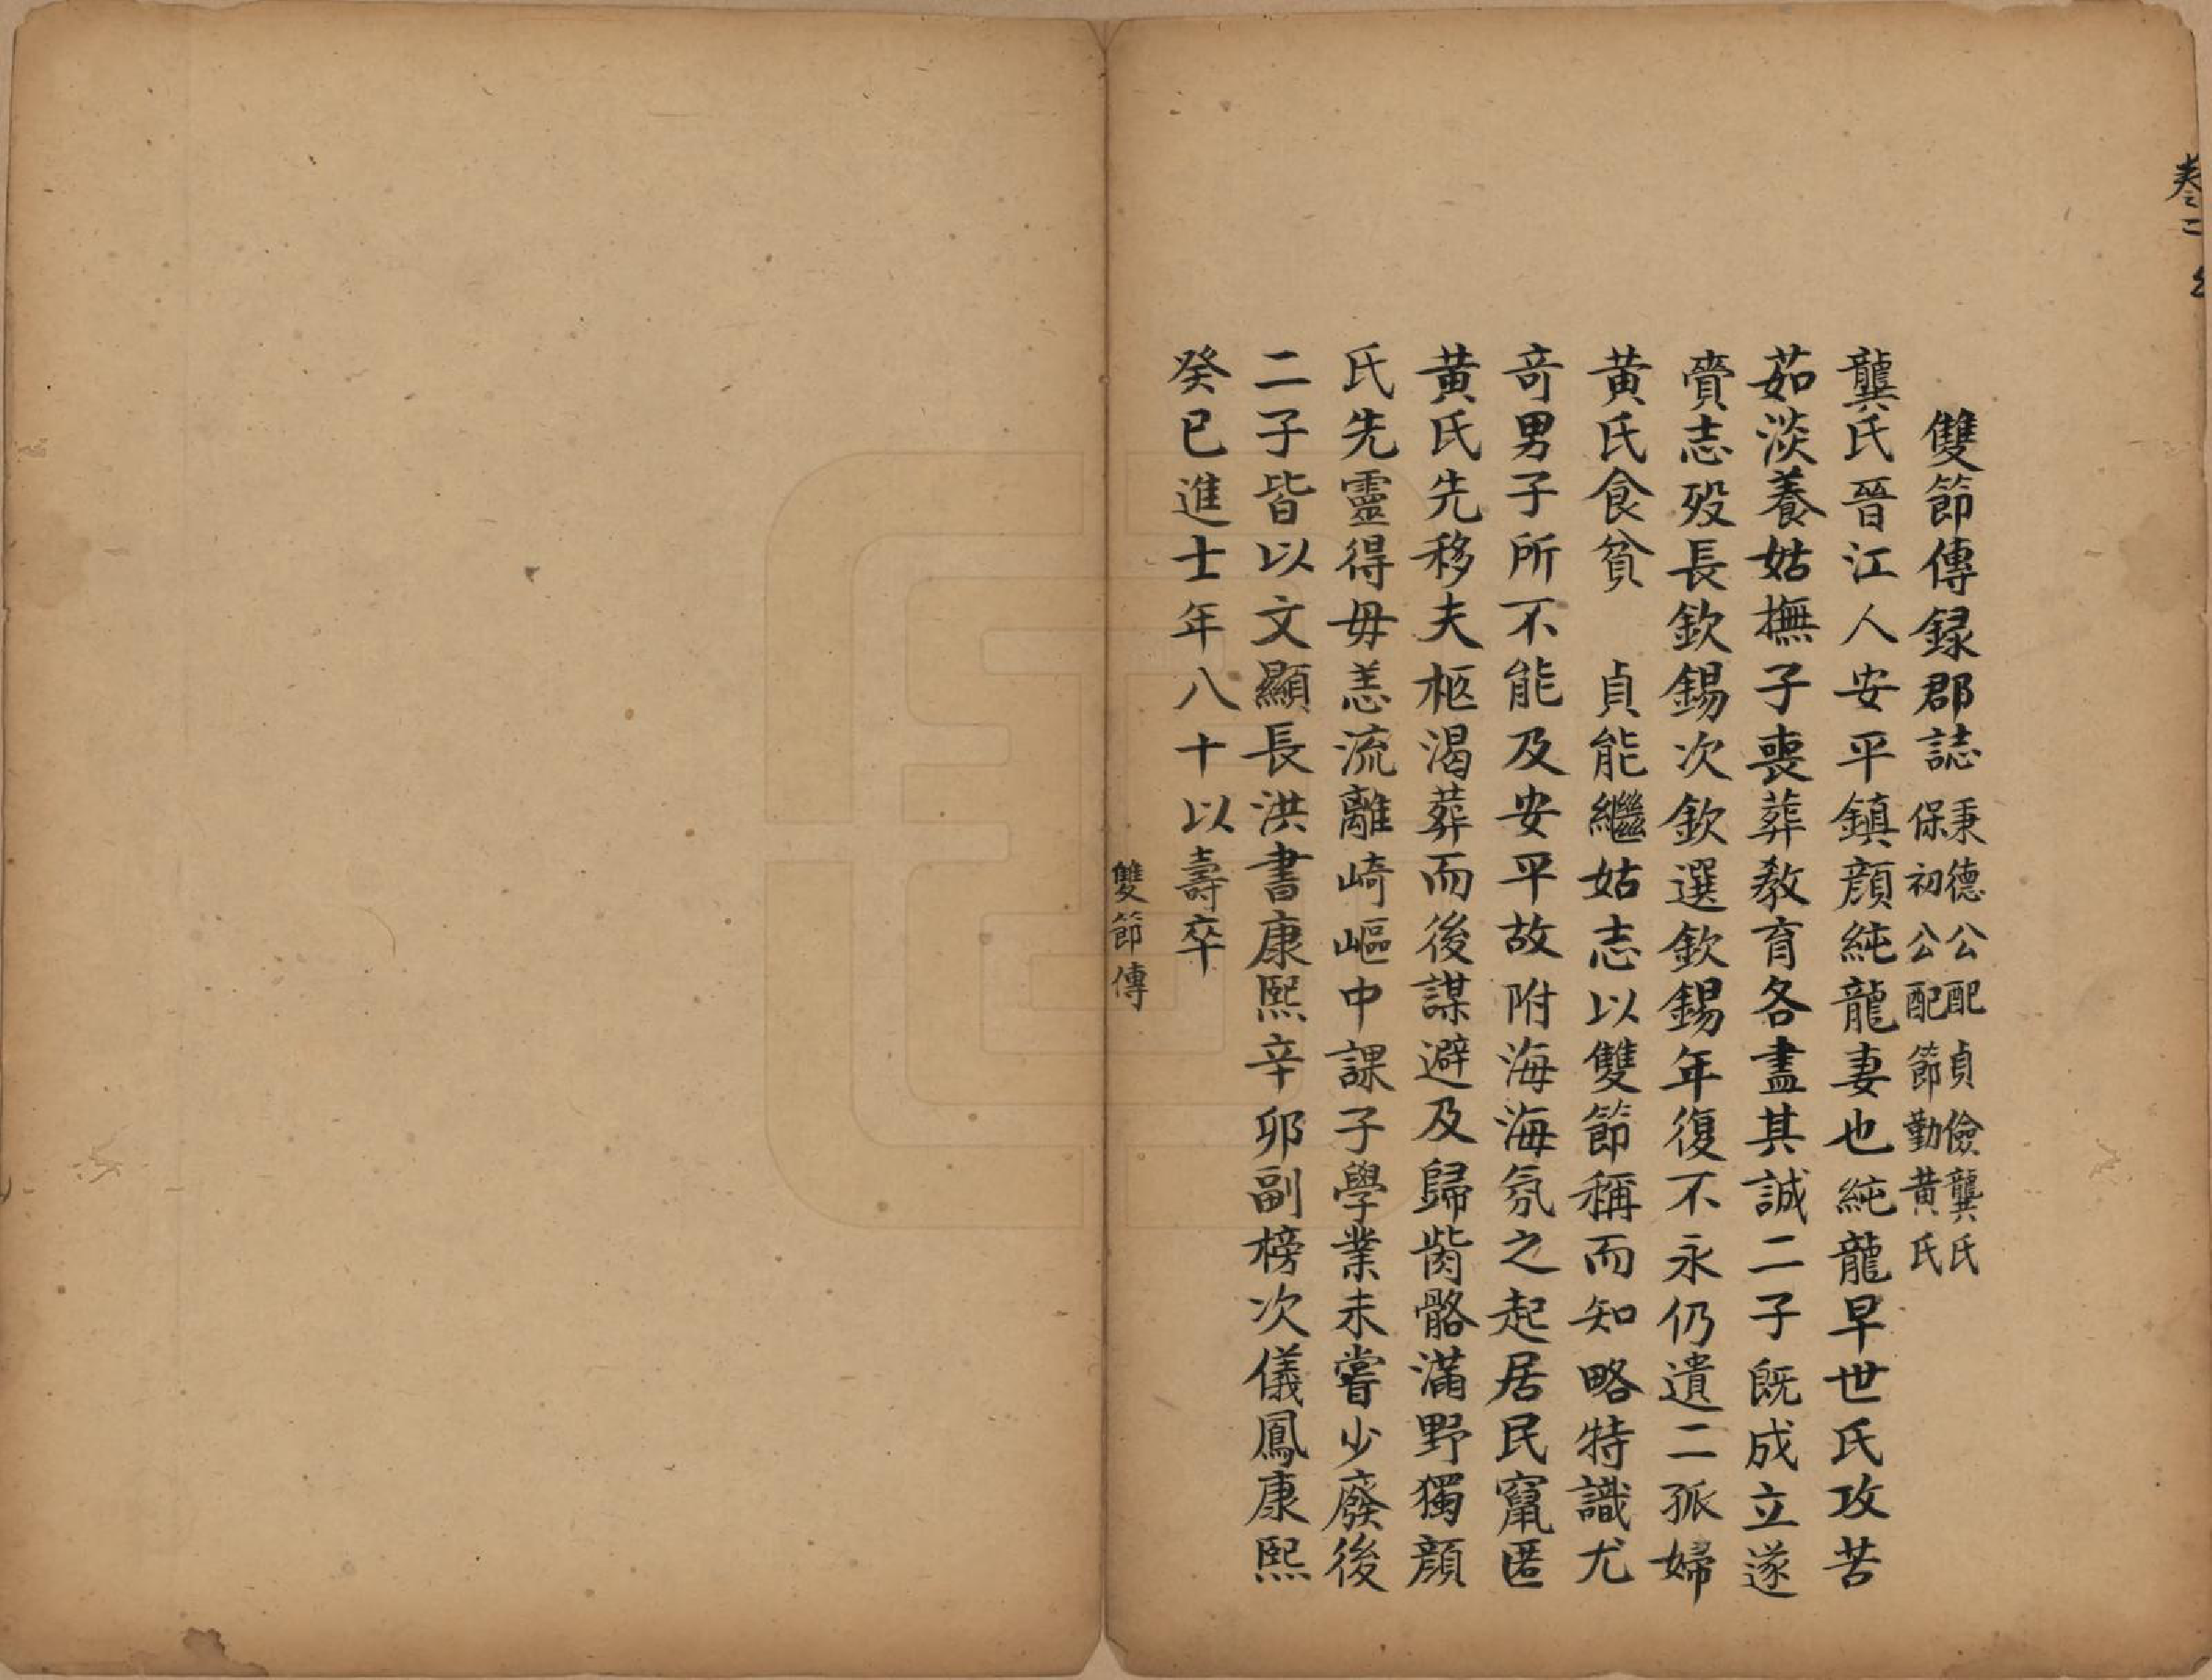 卷二
雙節傳録郡誌 秉德公配貞儉龔氏
保初公配節勤黄氏
龔氏晉江人安平鎮顔純龍妻也純龍早世氏攻苦
茹淡養姑撫子喪葬教育各盡其誠二子既成立遂
賫志歿長欽錫次欽選欽錫年復不永仍遺二孤婦
黄氏食貧 貞能繼姑志以雙節稱而知略特識尤
奇男子所不能及安平故附海海氛之起居民竄匿
黄氏先移夫柩渴葬而後謀避及歸胔骼滿野獨顔
氏先靈得毋恙流離崎嶇中課子學業未嘗少廢後
二子皆以文顯長洪書康熙辛卯副榜次儀鳳康熙
癸巳進士年八十以壽卒
雙節傳